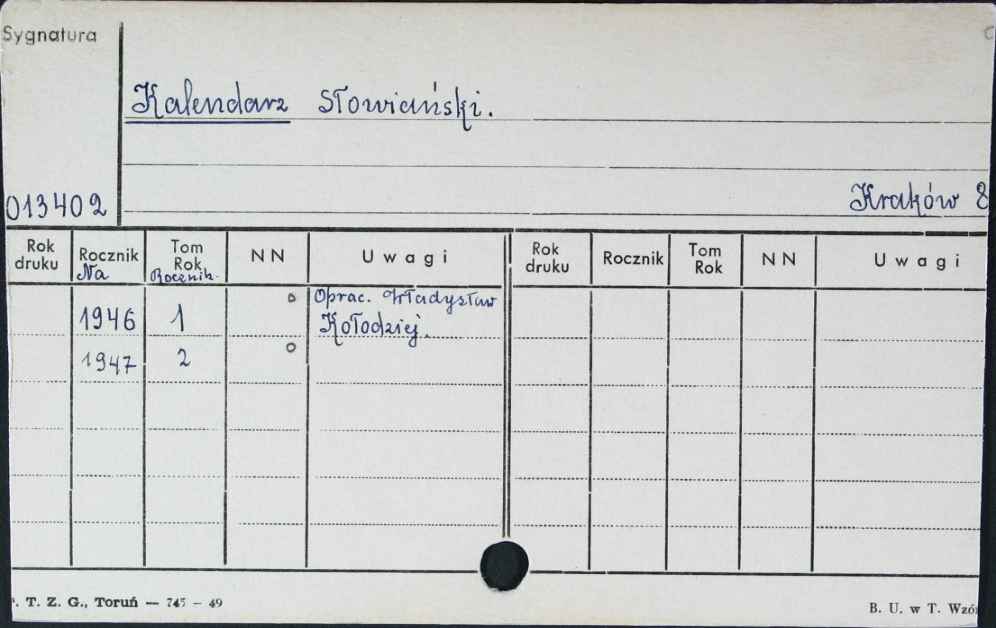 Sygnatura
Kalendarz Słowiański.
013402
Kraków 8
Rok druku Rocznik Na Tom Rok Rocznik. NN Uwagi Rok druku Rocznik Tom Rok NN Uwagi
1946 1 o Oprac. Władysław
Kołodziej.
1947 2 o
. T. Z. G., Toruń — 745 – 49
B. U. w T. Wzór